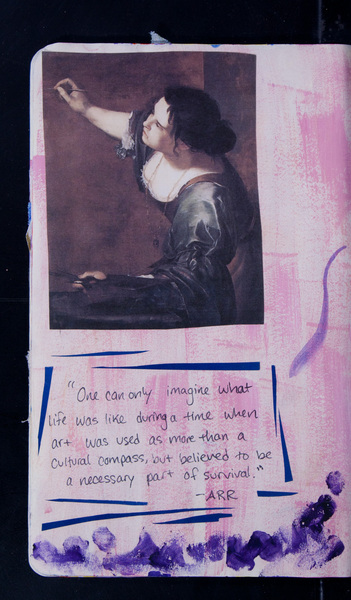 "One can only imagine what
life was like during a time when
art was used as more than a
cultural compass, but believed to be
a necessary part of survival."
-ARR